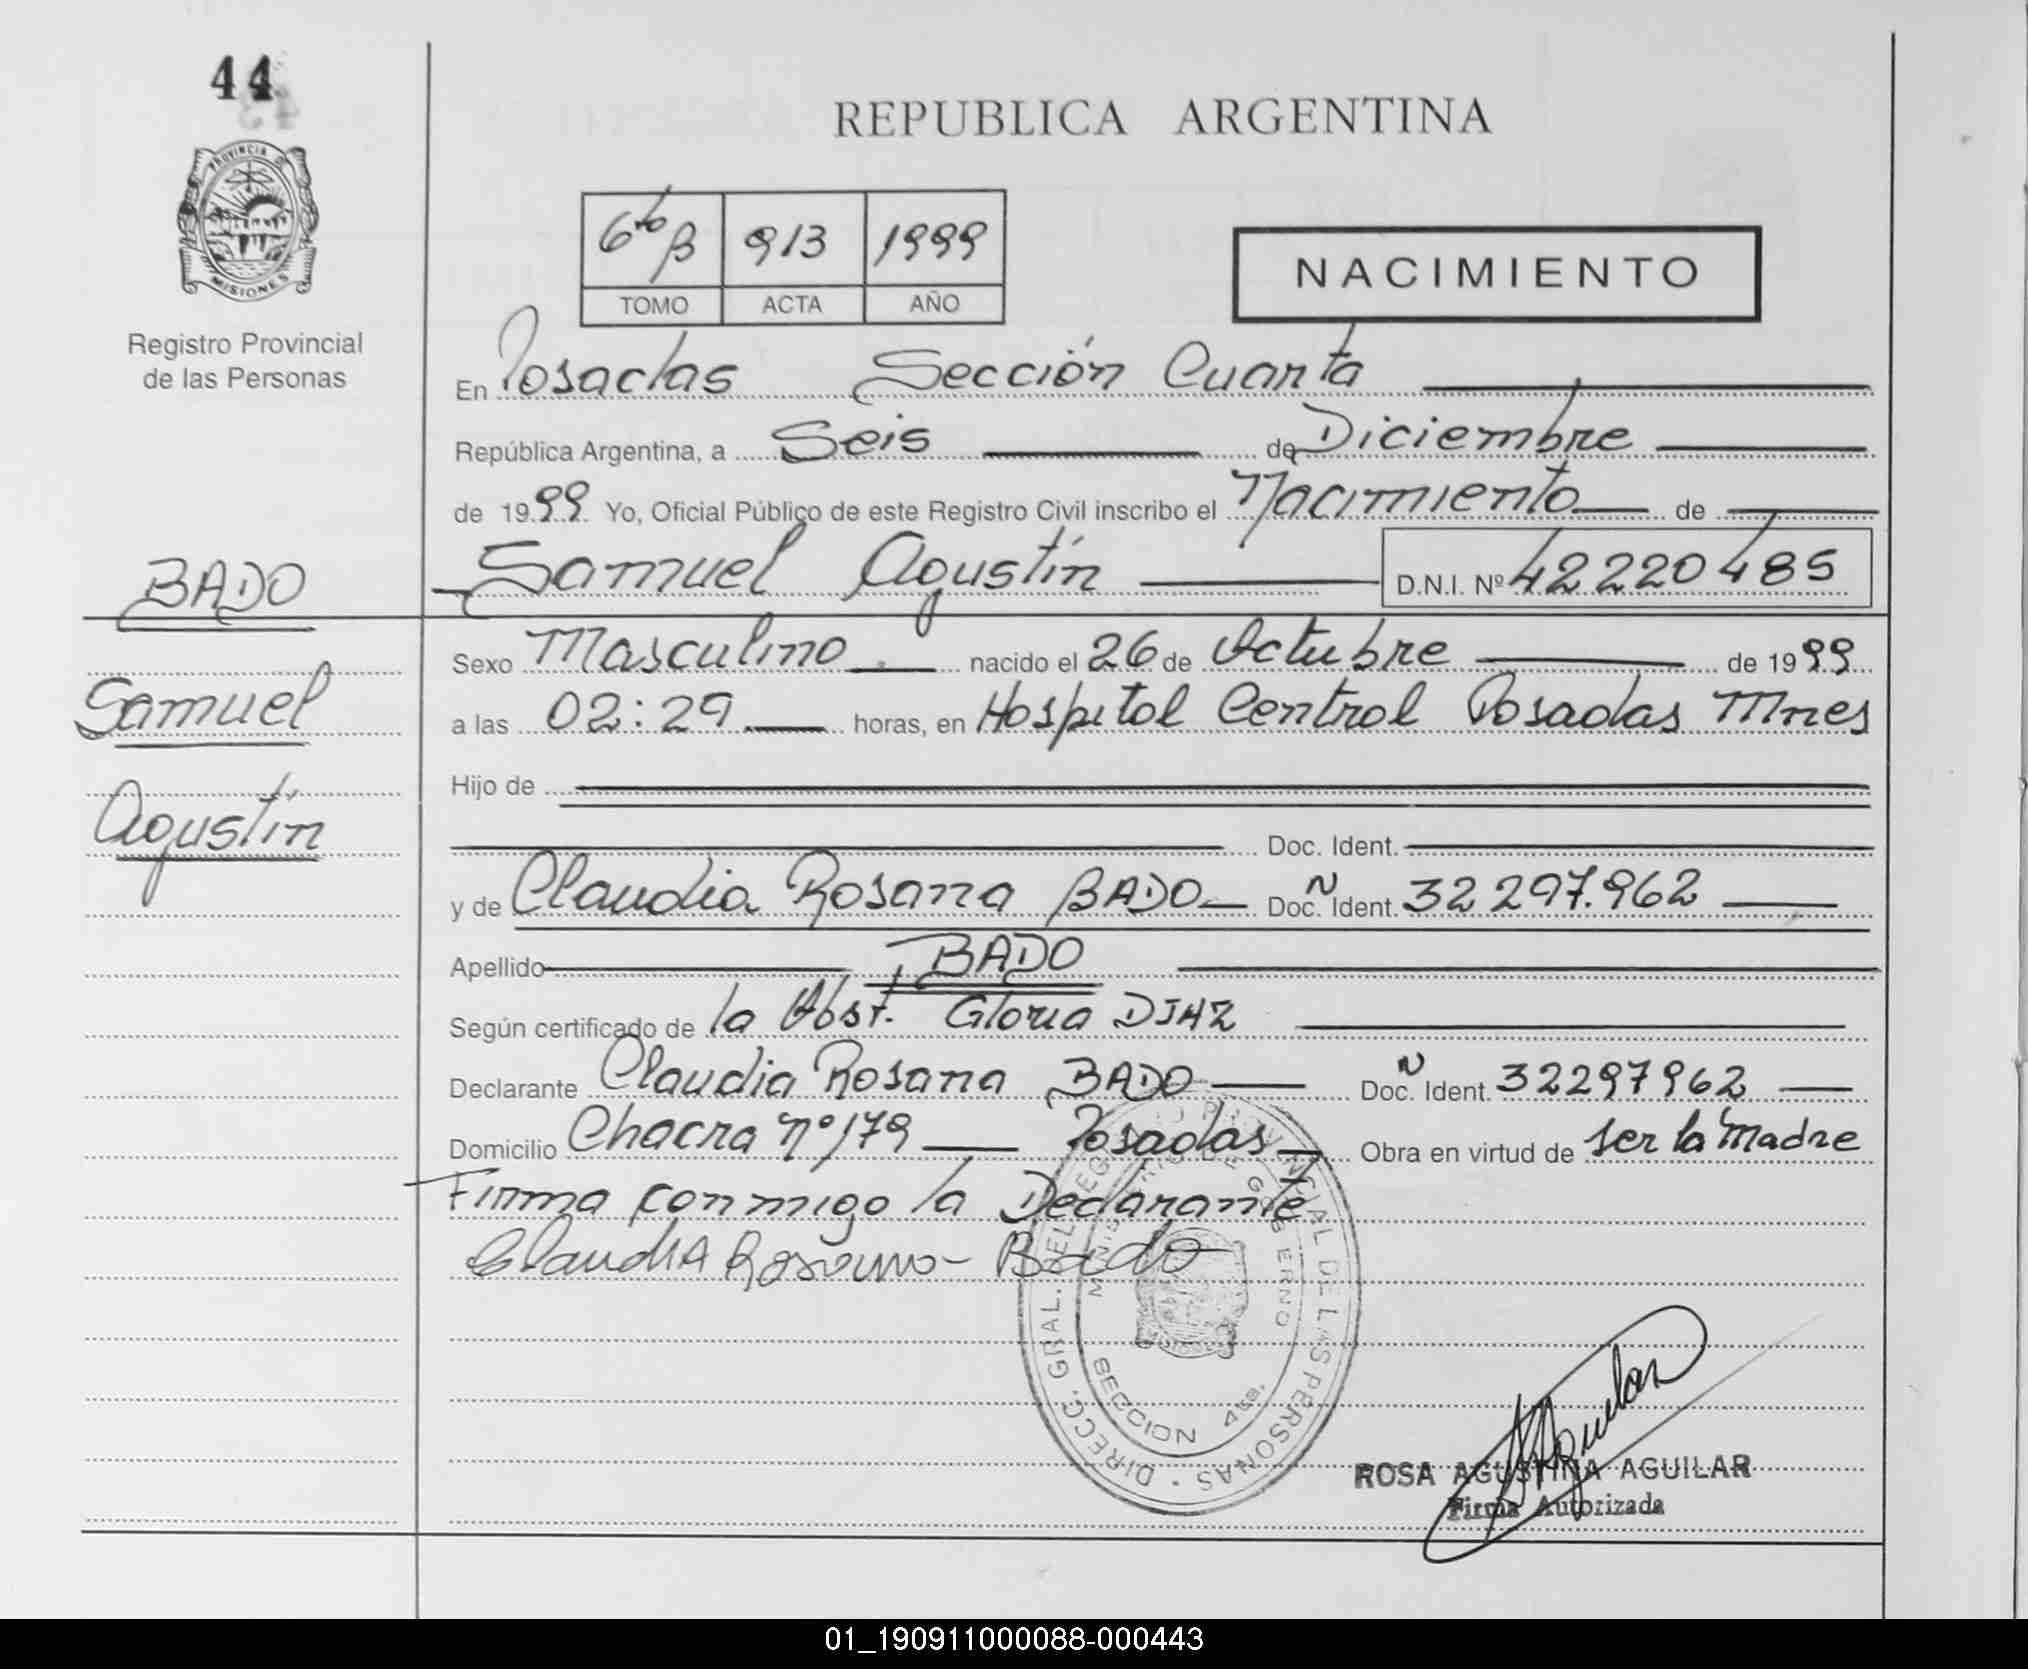 44
PROVINCIA DE
MISIONES
Registro Provincial
de las Personas
REPUBLICA ARGENTINA
6to B 913 1999
TOMO ACTA AÑO
NACIMIENTO
En Posadas Sección Cuarta
República Argentina, a Seis de Diciembre
de 1999 Yo, Oficial Público de este Registro Civil inscribo el Nacimiento de
BADO
Samuel Agustín D.N.I. Nº 42220485
Sexo Masculino nacido el 26 de Octubre de 1999
Samuel
a las 02:29 horas, en Hospital Central Posadas Mnes
Hijo de
Agustín
Doc. Ident.
y de Claudia Rosana BADO Doc. N Ident. 32 297.962
Apellido BADO
Según certificado de la Obst. Gloria DIAZ
Declarante Claudia Rosana BADO Doc. N Ident. 32297962
Domicilio Chacra nº 179 Posadas Obra en virtud de ser la madre
Firma conmigo la Declarante
Claudia Rosana Bado
DIRECC. GRAL. DEL REGISTRO PROVINCIAL DE LAS PERSONAS
MINISTERIO DE GOBIERNO
MISIONES
SECCION 4ta.
Aguilar
ROSA AGUSTINA AGUILAR
Firma Autorizada
01_190911000088-000443